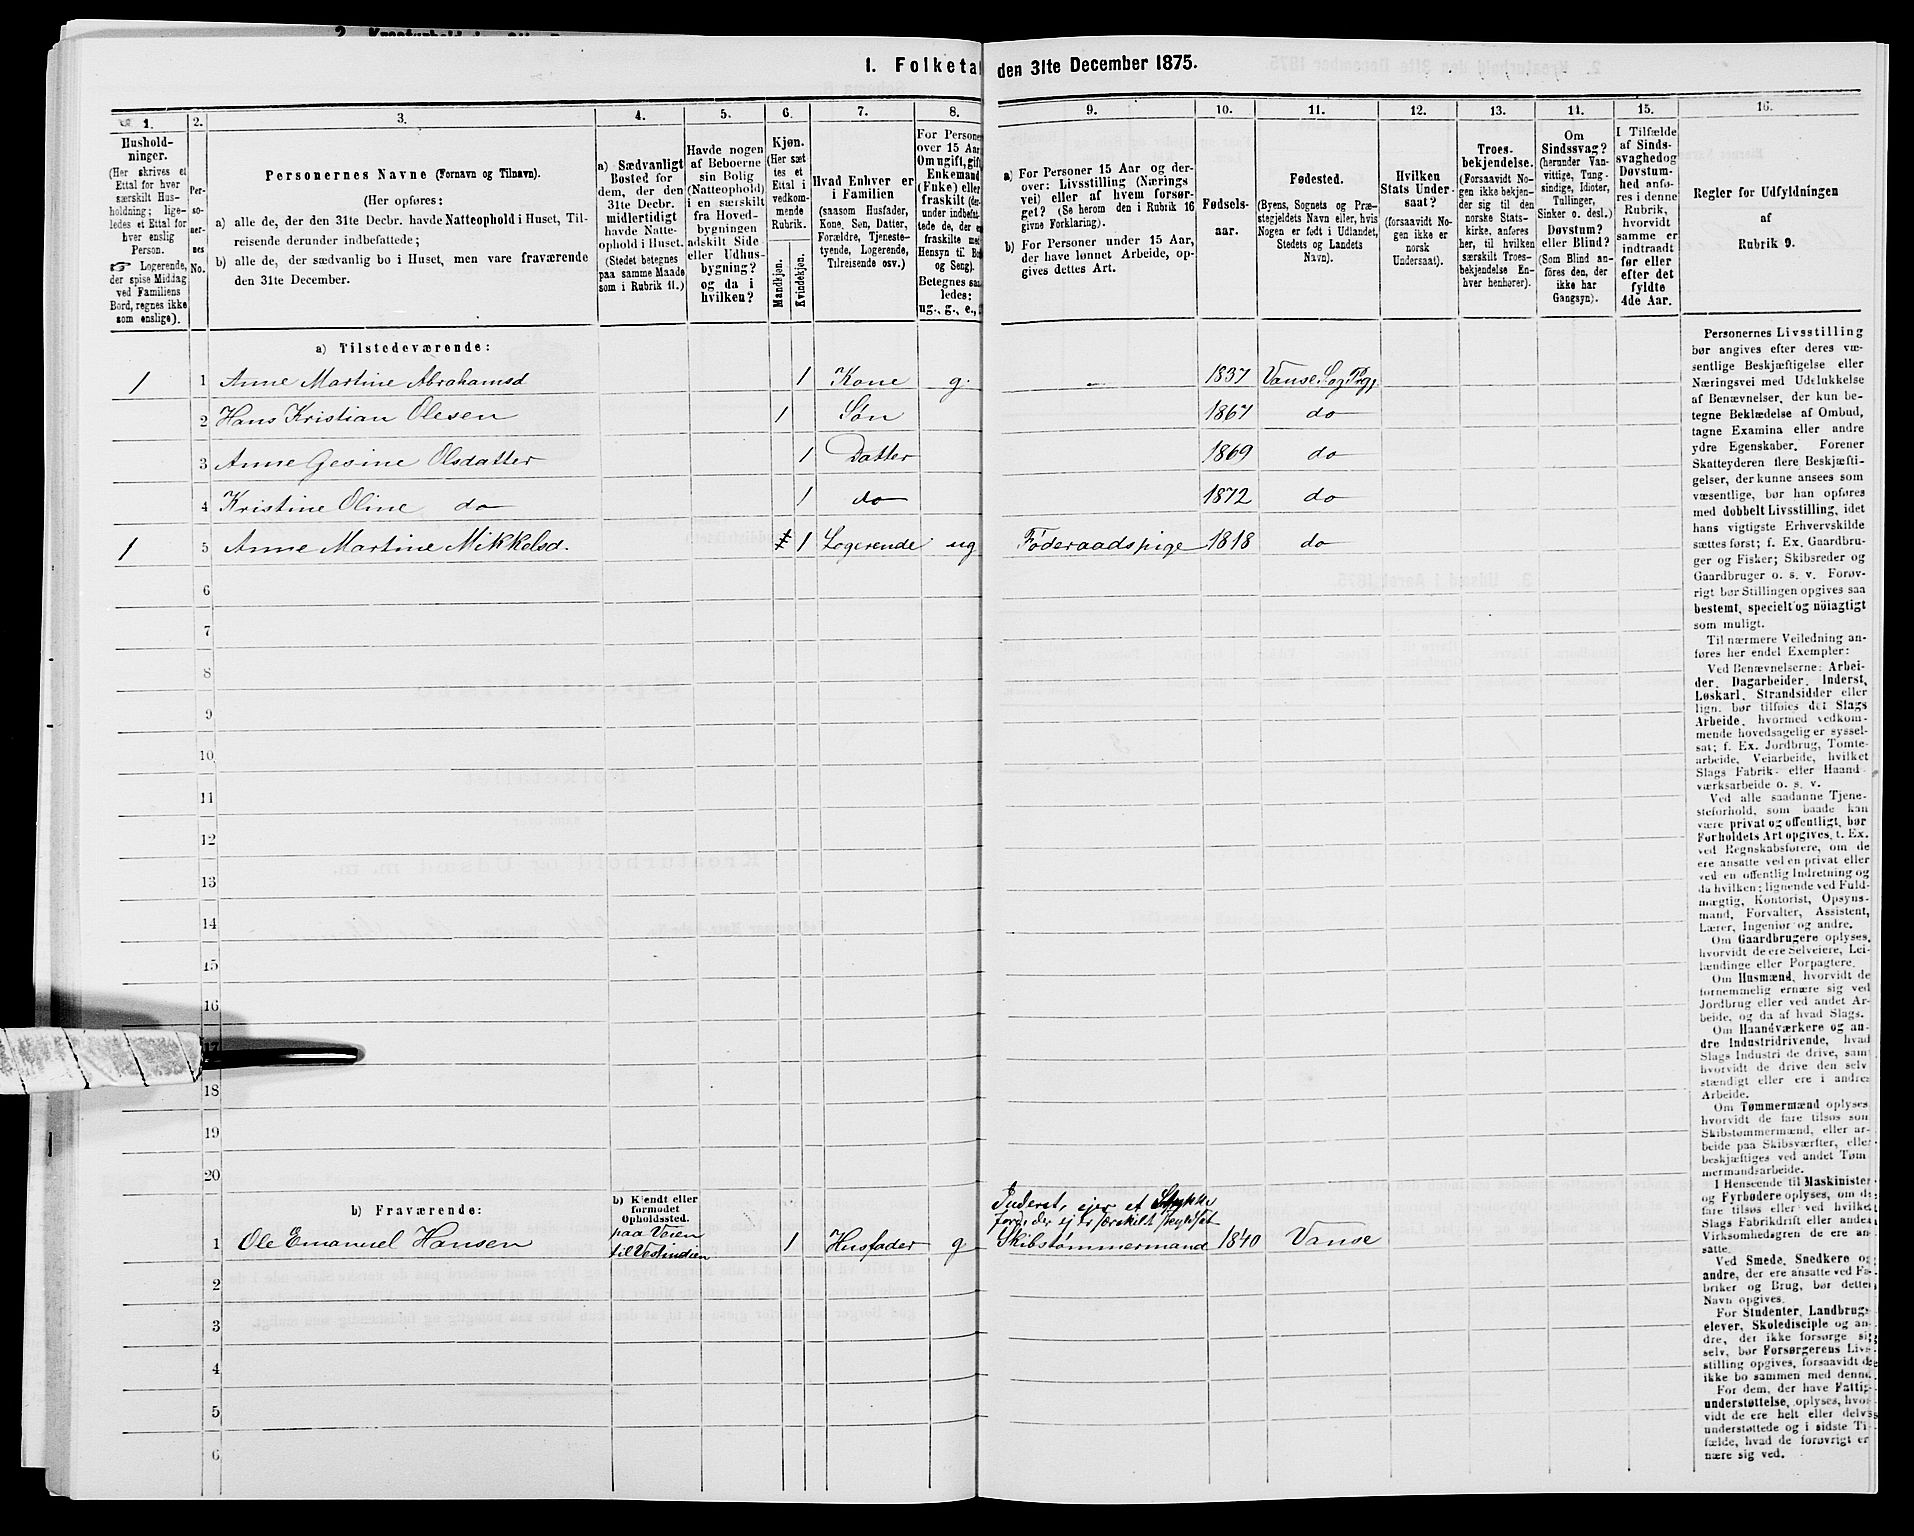 1. Folketal den 31te December 1875.
1. 2. 3. 4. 5. 6. 7. 8. 9. 10. 11. 12. 13. 14. 15. 16.
Hushold-
ninger.
(Her skrives et
Ettal for hver
særskilt Hus-
holdning; lige-
ledes et Ettal for
hver enslig
Person.
☞ Logerende,
der spise Middag
ved Familiens
Bord, regnes ikke
som enslige).
Per-
so-
ner-
nes
No.
Personernes Navne (Fornavn og Tilnavn).
(Her opføres:
a) alle de, der den 31te Decbr. havde Natteophold i Huset, Til-
reisende derunder indbefattede;
b) alle de, der sædvanlig bo i Huset, men vare fraværende
den 31te December.
a) Sædvanligt
Bosted for
dem, der den
31te Decbr.
midlertidigt
havde Natte-
ophold i Huset.
(Stedet betegnes
paa samme Maade
som i Rubrik 11.)
Havde nogen
af Beboerne
sin Bolig
(Natteophold)
i en særskilt
fra Hoved-
bygningen
adskilt Side-
eller Udhus-
bygning?
og da i
hvilken?
Kjøn.
(Her sæt-
tes et
Ettal i
vedkom-
mende
Rubrik.
Mandkjøn.
Kvindekjøn.
Hvad Enhver er
i Familien
(saasom Husfader,
Kone, Søn, Datter,
Forældre, Tjeneste-
tyende, Logerende,
Tilreisende osv.)
For Persone
over 15 Aar
Om ugift, gift
Enkemand
(Enke) eller
fraskilt (der-
under indbefat-
tede de, der e
fraskilte med
Hensyn til Bo
og Seng).
Betegnes saa-
ledes:
ug., g., e.,
a) For Personer 15 Aar og der-
over: Livsstilling (Nærings
vei) eller af hvem forsør-
get? (Se herom den i Rubrik 16
givne Forklaring).
b) For Personer under 15 Aar,
der have lønnet Arbeide, op-
gives dettes Art.
Fødsels-
aar.
Fødested.
(Byens, Sognets og Præ-
stegjeldets Navn eller, hvis
Nogen er født i Udlandet,
Stedets og Landets
Navn).
Hvilken
Stats Under-
saat?
(forsaavidt No-
gen ikke er
norsk
Undersaat).
Troes-
bekjendelse.
(Forsaavidt No-
gen ikke bekjen-
der sig til den
norske Stats-
kirke, anføres
her, til hvilken
særskilt Troes-
bekjendelse En-
hver henhører).
Om
Sindssvag?
(herunder Van-
vittige, Tung-
sindige, Idioter,
Tullinger,
Sinker o. desl.)
Døvstum?
eller Blind?
(Som Blind an-
føres den, der
ikke har
Gangsyn).
I Tilfælde
af Sinds-
svaghed og
Døvstum-
hed anfø-
res i denne
Rubrik,
hvorvidt
samme er
indtraadt
før eller
efter det
fyldte
4de Aar.
Regler for Udfyldningen
af
Rubrik 9.
a) Tilstedeværende:
1 1 Anne Martine Abrahamsd 1 Kone g. 1837 Vanse S. og Prg,
2 Hans Kristian Olesen 1 Søn 1867 do
3 Anne Gesine Olsdatter 1 Datter 1869 do
4 Kristine Oline do 1 do 1872 do
1 5 Anne Martine Mikkelsd. 1 Logerende ug Føderaadspige 1818 do
6
7
8
9
10
11
12
13
14
15
16
17
18
19
20
b) Fraværende:
b) Kjendt eller
formodet
Opholdssted.
1 Ole Emanuel Hansen paa Veien
til Vestindien 1 Husfader g
Inderst, ejer et Stykke
Jord, der ej er særskilt skyldsat
Skibstømmermand 1840 Vanse
2
3
4
5
6
Personernes Livsstilling
bør angives efter deres væ-
sentlige Beskjæftigelse eller
Næringsvei med Udelukkelse
af Benævnelser, der kun be-
tegne Beklædelse af Ombud,
tagne Examina eller andre
ydre Egenskaber. Forener
Skatteyderen flere Beskjæfti-
gelser, der kunne ansees som
væsentlige, bør han opføres
med dobbelt Livsstilling, idet
hans vigtigste Erhvervskilde
sættes først; f. Ex. Gaardbru-
ger og Fisker; Skibsreder og
Gaardbruger o. s. v. Forøv-
rigt bør Stillingen opgives saa
bestemt, specielt og nöiagtigt
som muligt.
Til nærmere Veiledning an-
føres her endel Exempler:
Ved Benævnelserne: Arbei-
der, Dagarbeider, Inderst,
Løskarl, Strandsidder eller
lign. bør tilføies det Slags
Arbeide, hvormed vedkom-
mende hovedsagelig er syssel-
sat; f. Ex. Jordbrug, Tomte-
arbeide, Veiarbeide, hvilket
Slags Fabrik- eller Haand-
værksarbeide o. s. v.
Ved alle saadanne Tjene-
steforhold, som baade kan
være privat og offentligt, bør
Forholdets Art opgives, t. Ex.
ved Regnskabsførere, om de
ere ansatte ved en privat eller
ved en offentlig Indretning og
da hvilken; lignende ved Fuld-
mægtig, Kontorist, Opsyns-
mand, Forvalter, Assistent,
Lærer, Ingeniør og andre.
Om Gaardbrugere oplyses,
hvorvidt de ere Selveiere, Lei-
lændinge eller Porpagtere.
Om Husmænd, hvorvidt de
fornemmelig ernære sig ved
Jordbrug eller ved andet Ar-
beide, og da af hvad Slags.
Om Haandværkere og an-
dre Industridrivende, hvad
Slags Industri de drive, samt
hvorvidt de drive den selv-
stændigt eller ere i andres
Arbeide.
Om Tømmermænd oplyses
hvorvidt de fare tilsøs som
Skibstømmermænd, eller ar-
beide paa Skibsværfter, eller
beskjæftiges ved andet Tøm-
mermandsarbeide.
I Henseende til Maskinister
og Fyrbødere oplyses, om de
fare tilsøs eller ved hvilket
Slags Fabrikdrift eller anden
Virksomhedsgren de ere an-
satte.
Ved Smede, Snedkere og
andre, der ere ansatte ved Fa-
briker og Brug, bør dettes
Navn opgives.
For Studenter, Landbrugs-
elever, Skoledisciple og an-
dre, der ikke forsørge sig
selv, bør Forsørgerens Livs-
stilling opgives, forsaavidt de
ikke bo sammen med denne.
For dem, der have Fattig-
understøttelse, oplyses, hvor-
vidt de ere helt eller delvis
understøttede og i sidste Til-
fælde, hvad de forøvrigt er-
nære sig ved.